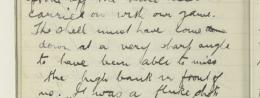 carried on with our game.
The shell must have come
down at a very sharp angle
to have been able to miss
the high bank in front of
us. It was a fluke shot